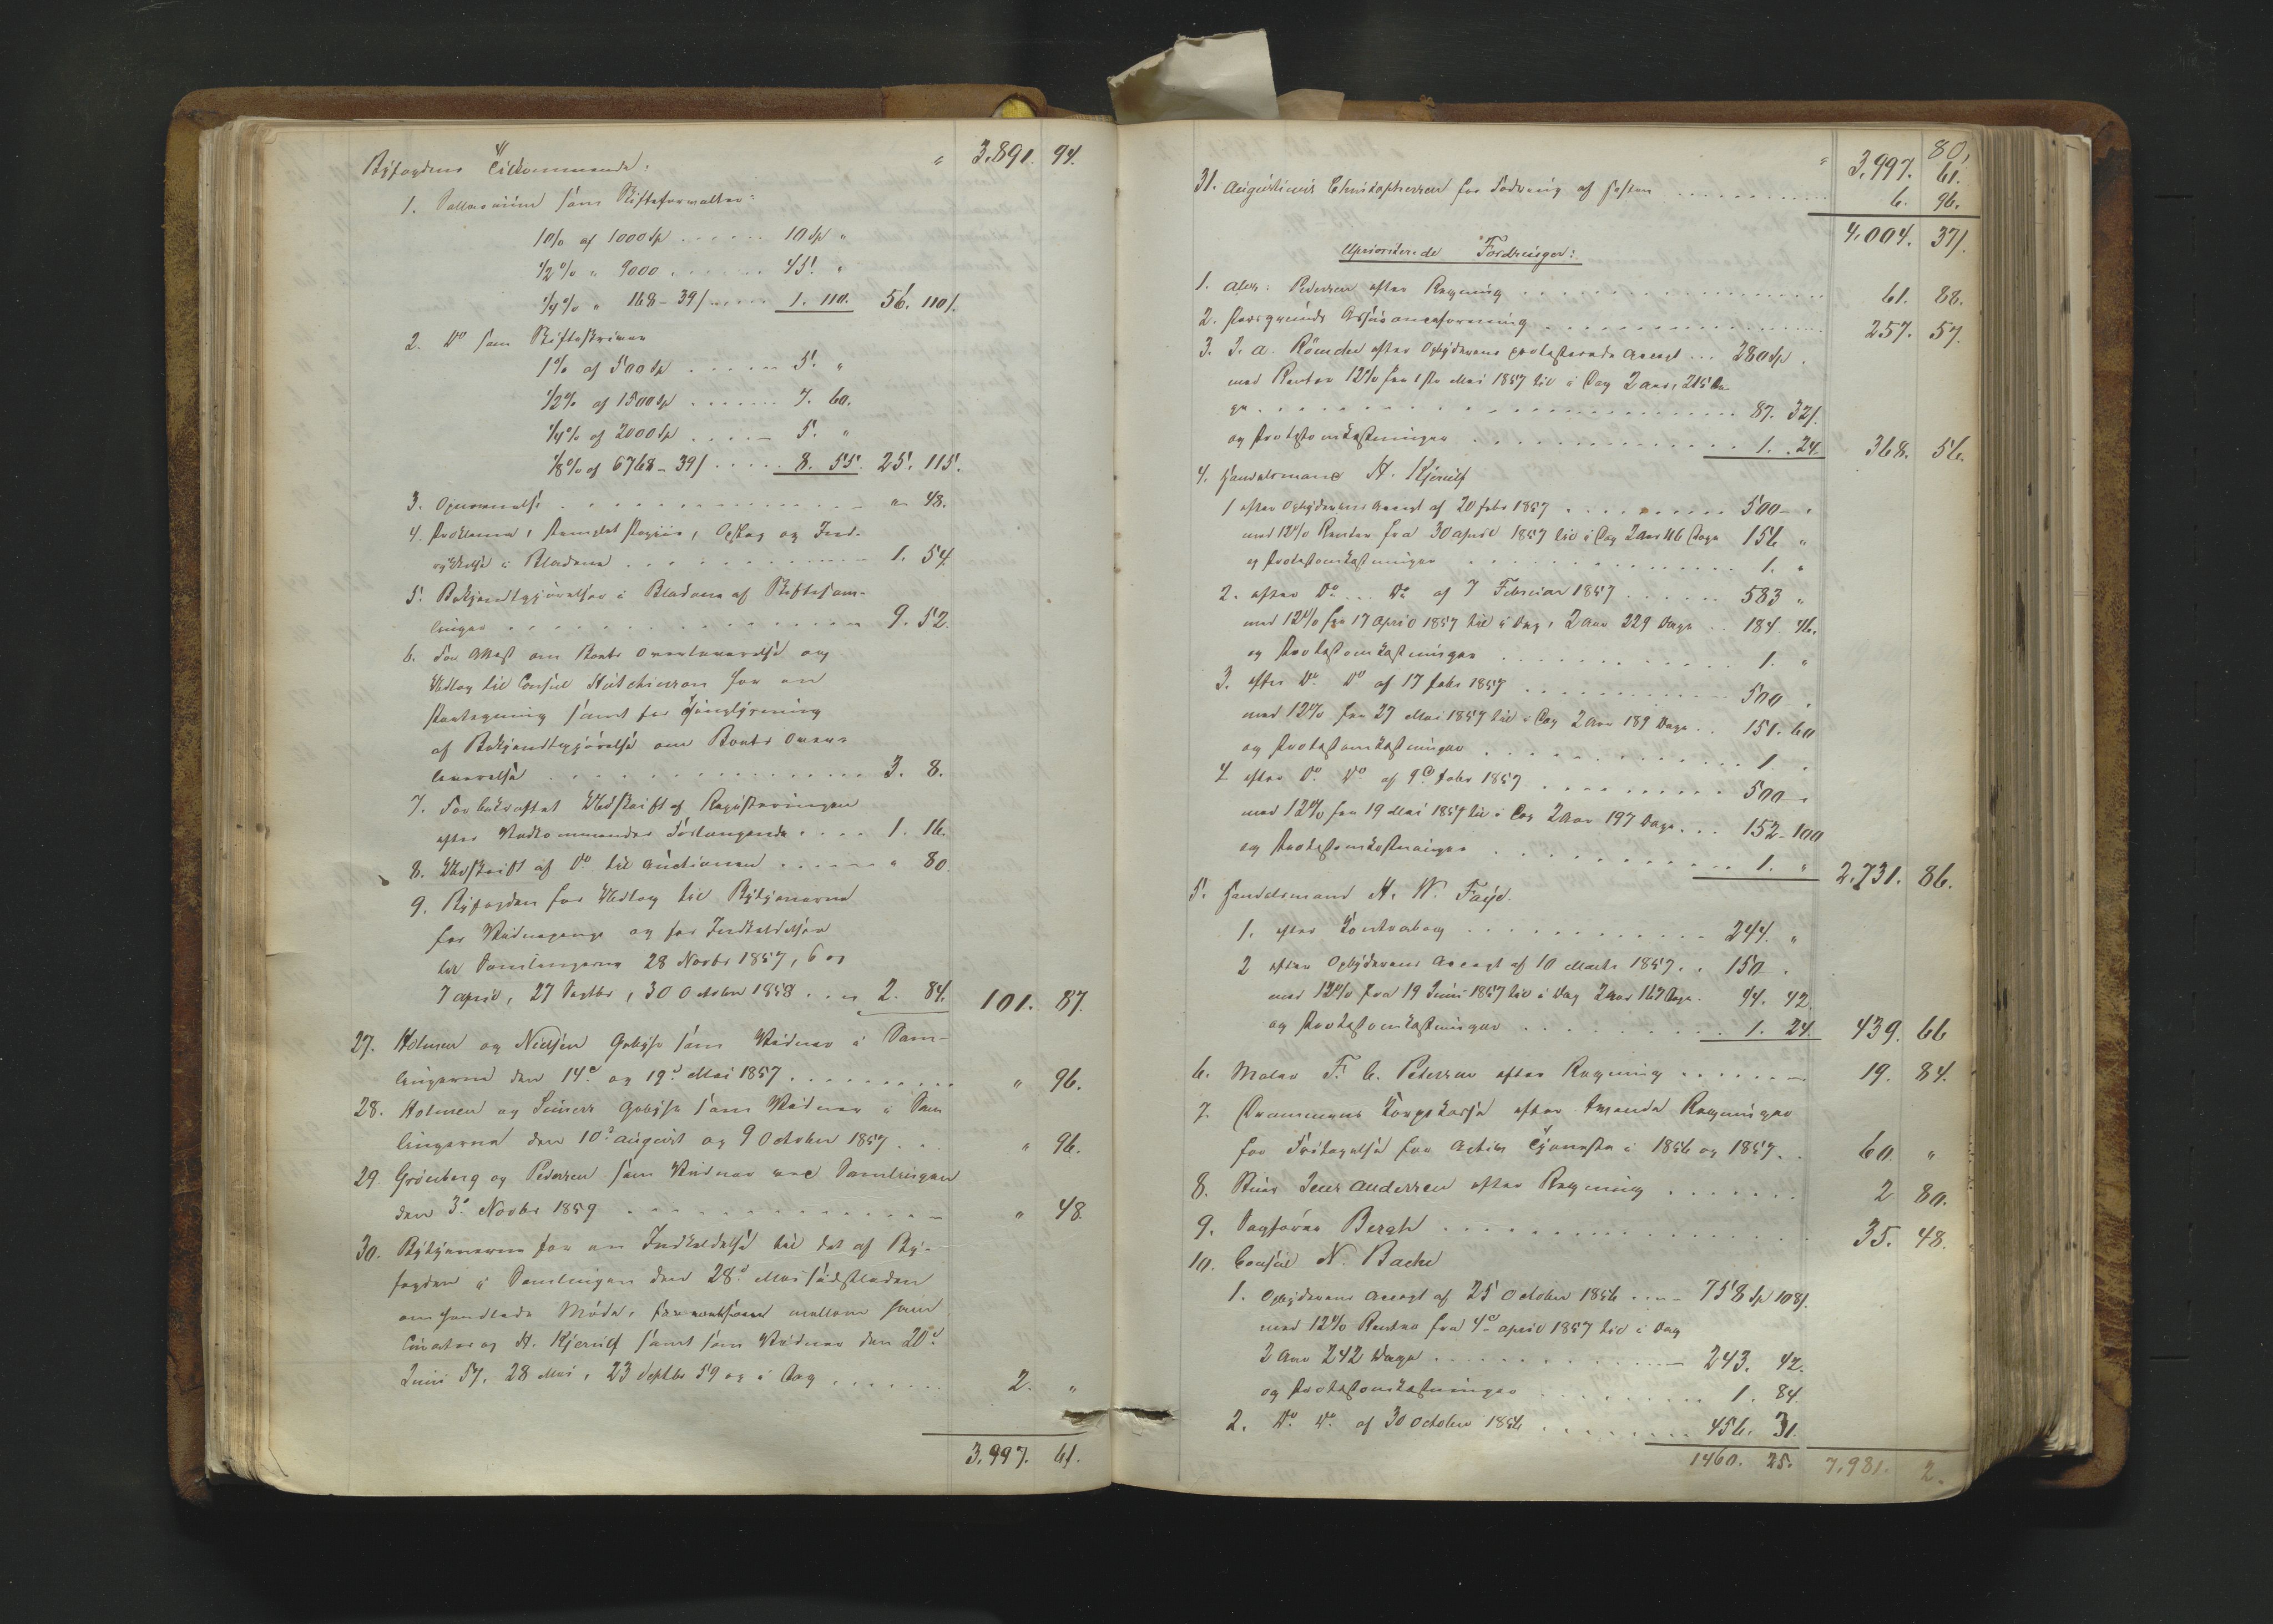 Byfogdens Tilkommende: " 3.891. 94.
1. Sallarium som Skifteforvalter:
1% af 1000 Sp . . . . . . 10 Sp "
1/2% " 9000 . . . . . . 45. "
1/4% " 168-39/ . . . . . 1. 110. 56. 110/.
2. Do som Skifteskriver
1% af 500 Sp . . . . . . 5. "
1/2% af 1500 Sp . . . . . . 7. 60.
1/4% af 2000 Sp . . . . . 5. "
1/8% af 6768-39/ . . . . . 8. 55. 25. 115.
3. Opnævnelse . . . . . . " 48.
4. Proklama, stemplet Papiir, Opslag og Ind-
rykkelse i Bladene . . . . . . 1. 54.
5. Bekjendtgjørelser i Bladene af Skiftesam-
linger . . . . . . 9. 52.
6. For Attest om Boets Overleverelse og
Udlæg til Consul Hutchinson for en
Paategning samt for Thinglysning
af Bekjendtgjørelse om Boets Over-
leverelse . . . . . . 3. 8.
7. For bekræftet Udskrift af Registreringen
efter Vedkommendes Forlangende . . . . 1. 16.
8. Udskrift af Do til Auctionen . . . . . " 80.
9. Byfogden for Udlæg til Bytjenerne
for Vidnegange og for Indkaldelser
til Samlingerne 28 Novbr 1857, 6 og
7 April, 27 Septbr, 30 October 1858 . . . 2. 84. 101. 87.
27. Holmen og Nielsen Gebyr som Vidner i Sam-
lingerne den 14de og 19de Mai 1857 . . . . . . " 96.
28. Holmen og Gebyr som Vidner i Sam
lingerne den 10de August og 9 October 1857 . . . " 96.
29. Grönberg og Pedersen som Vidner ved Samlingen
den 3de Novbr 1859 . . . . . . " 48.
30. Bytjenerne for en Indkaldelse til det af By-
fogden i Samlingen den 28de Mai sidstleden
omhandlede Møde, mellem
Curator og H. Kjerulf samt som Vidner den 20de
Juni 57, 28 Mai, 23 Septbr 59 og i Dag . . . . . . 2. "
3.997. 61.
80.
" 3.997. 61.
31. Augustinus Christophersen for Fodring af Hesten . . . . . . 6. 96.
4.004. 37/.
Uprioriterede Fordringer:
1. Alex: Pedersen efter Regning . . . . . . 61. 88.
2. Porsgrunds Assuranceforening . . . . . . 257. 57.
3. J. A. Römcke efter Opbyderens protesterede Accept . . . 280 Sp .
med Renter 12% fra 1ste Mai 1857 til i Dag 2 Aar, 215 Da-
ge . . . . . . 87. 32/.
og Protestomkostninger . . . . . . 1. 24. 368. 56.
4. Handelsmand H. Kjerulf
1 efter Opbyderens Accept af 20 Febr 1857 . . . . . . 500 - "
med 12% Renter fra 30 April 1857 til i Dag 2 Aar 216 Dage 156 "
og Protestomkostninger . . . . . . 1. "
2. efter Do . . . Do af 7 Februar 1857 . . . . . . 583 "
med 12% fra 17 April 1857 til i Dag, 2 Aar 229 Dage . . 184. 46.
og Protestomkostninger . . . . . . 1. "
3. efter Do Do af 17 Febr 1857 . . . . . . 500 .
med 12% fra 27 Mai 1857 til i Dag 2 Aar 189 Dage . . 151. 60
og Protestomkostninger . . . . . . 1 .
4 efter Do Do af 9de Febr 1857 . . . . . . 500 - .
med 12% fra 19 Mai 1857 til i Dag 2 Aar 197 Dage . . . 152 - 100
og Protestomkostninger . . . . . . 1. " 2.731. 86.
5. Handelsmand H. W. Faye
1. efter Contrabog . . . . . . 244. "
2 efter Opbyderens Accept af 10 Marts 1857 . . 150 .
med 12% fra 19 Juni 1857 til i Dag 2 Aar 167 Dage . 44. 42.
og Protestomkostninger . . . . . . 1. 24. 439. 66
6. Maler F. C. Petersen efter Regning . . . . . . 19. 84.
7. Drammens efter tvende Regninger
for Fritagelse for Activ Tjeneste i 1856 og 1857 . . 60. "
8. Jens Andersen efter Regning . . . . . . 2 80.
9. Sagfører Bergh . . . . . . 35. 48.
10. Consul N. Bache
1. Opbyderens Accept af 25 October 1856 . . . 758 Sp 108/.
med 12% Renter fra 4de April 1857 til i Dag
2 Aar 242 Dage . . . . . . 243. 42.
og Protestomkostninger . . . . . . 1. 84.
2. Do Do af 30 October 1856 . . . . . . 456. 31.
1460. 25. 7.981. 2.